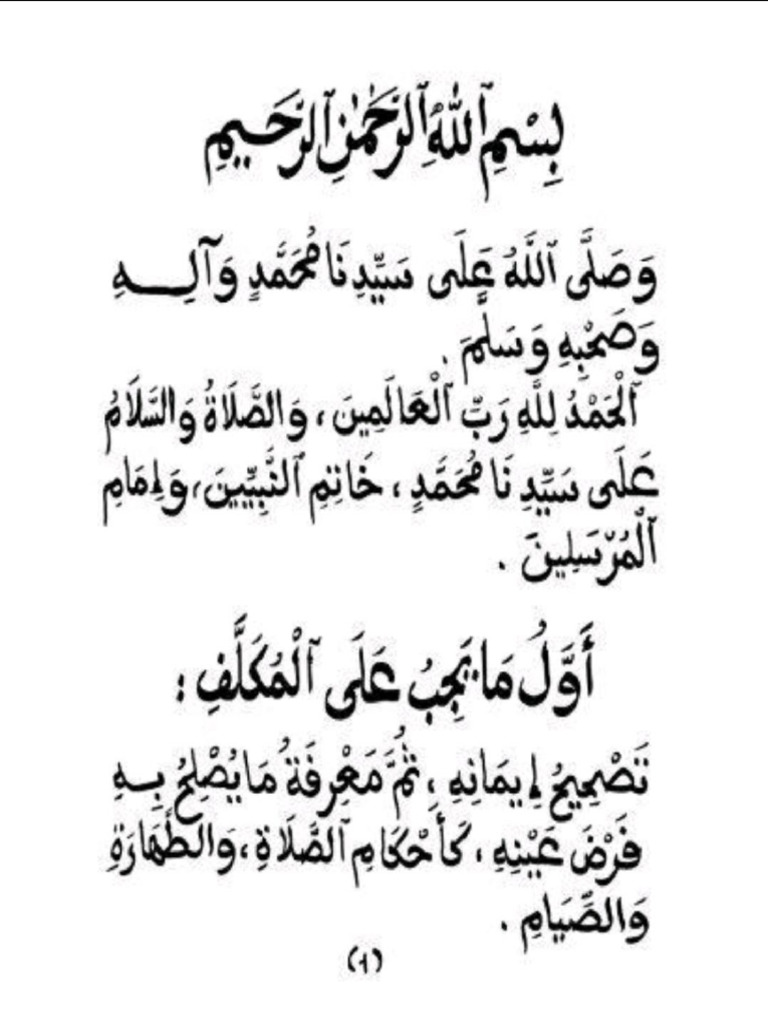 بِسْمِ ٱللَّهِ ٱلرَّحْمَٰنِ ٱلرَّحِيمِ
وَصَلَّى ٱللَّهُ عَلَى سَيِّدِنَا مُحَمَّدٍ وَآلِهِ
وَصَحْبِهِ وَسَلَّمَ .
ٱلْحَمْدُ لِلَّهِ رَبِّ ٱلْعَالَمِينَ ، وَالصَّلَاةُ وَالسَّلَامُ
عَلَى سَيِّدِنَا مُحَمَّدٍ ، خَاتِمِ ٱلنَّبِيِّينَ، وَإِمَامِ
ٱلْمُرْسَلِينَ .
أَوَّلُ مَا يَجِبُ عَلَى ٱلْمُكَلَّفِ :
تَصْحِيحُ إِيمَانِهِ ، ثُمَّ مَعْرِفَةُ مَا يُصْلِحُ بِهِ
فَرْضَ عَيْنِهِ ، كَأَحْكَامِ ٱلصَّلَاةِ ، وَالطَّهَارَةِ
وَالصِّيَامِ .
(١)